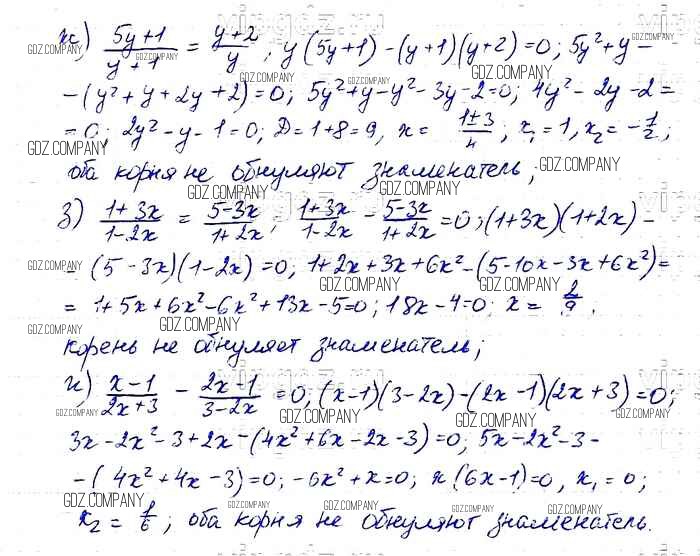 ж) (5y+1)/(y+1) = (y+2)/y ; y(5y+1)-(y+1)(y+2)=0; 5y²+y-
-(y²+y+2y+2)=0; 5y²+y-y²-3y-2=0; 4y²-2y-2=
=0; 2y²-y-1=0; D=1+8=9, x= (1±3)/4 ; x₁=1, x₂=-1/2;
оба корня не обнуляют знаменатель;
з) (1+3x)/(1-2x) = (5-3x)/(1+2x); (1+3x)/(1-2x) - (5-3x)/(1+2x) =0; (1+3x)(1+2x)-
-(5-3x)(1-2x)=0; 1+2x+3x+6x²-(5-10x-3x+6x²)=
=1+5x+6x²-6x²+13x-5=0; 18x-4=0; x= 2/9.
корень не обнуляет знаменатель;
и) (x-1)/(2x+3) - (2x-1)/(3-2x) =0; (x-1)(3-2x)-(2x-1)(2x+3)=0;
3x-2x²-3+2x-(4x²+6x-2x-3)=0; 5x-2x²-3-
-(4x²+4x-3)=0; -6x²+x=0; x(6x-1)=0, x₁=0;
x₂= 1/6; оба корня не обнуляют знаменатель.
GDZ.COMPANY